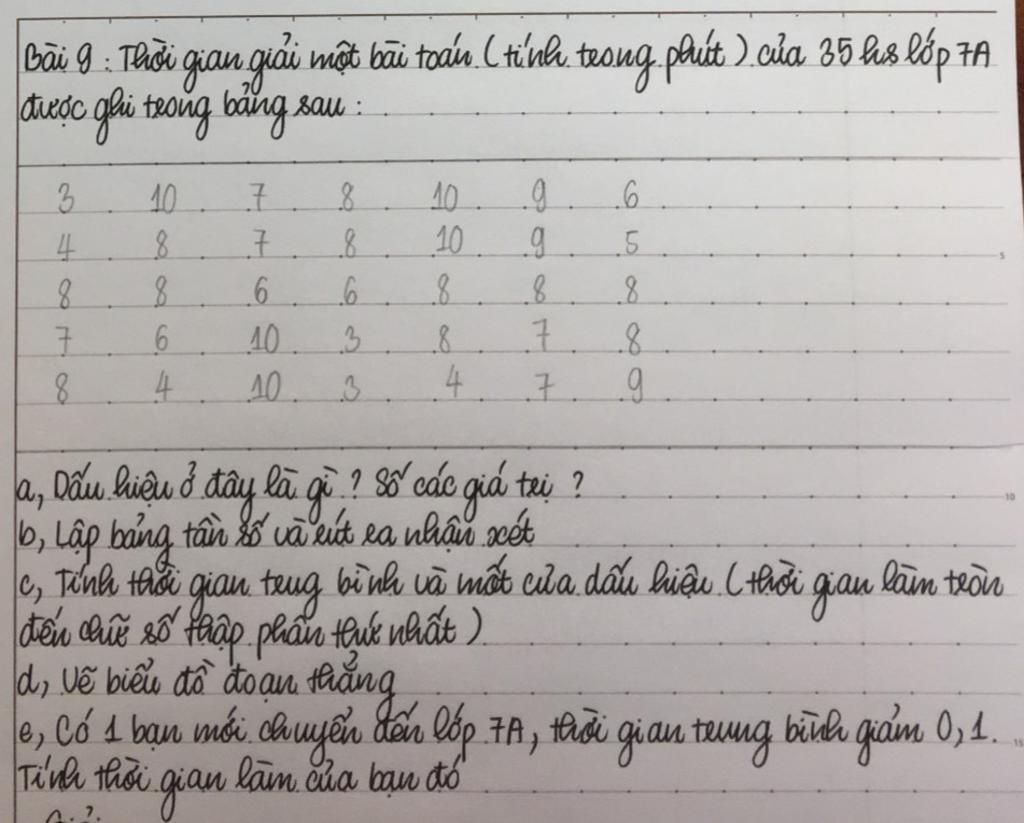 Bài 9: Thời gian giải một bài toán (tính trong phút) của 35 hs lớp 7A
được ghi trong bảng sau:
3 10 7 8 10 9 6
4 8 7 8 10 9 5
8 8 6 6 8 8 8
7 6 10 3 8 7 8
8 4 10 3 4 7 9
a, Dấu hiệu ở đây là gì? Số các giá trị?
b, Lập bảng tần số và rút ra nhận xét
c, Tính thời gian trug bình và mốt của dấu hiệu (thời gian làm tròn
đến chữ số thập phân thứ nhất)
d, Vẽ biểu đồ đoạn thẳng
e, Có 1 bạn mới chuyển đến lớp 7A, thời gian trung bình giảm 0,1.
Tính thời gian làm của bạn đó
5
10
15